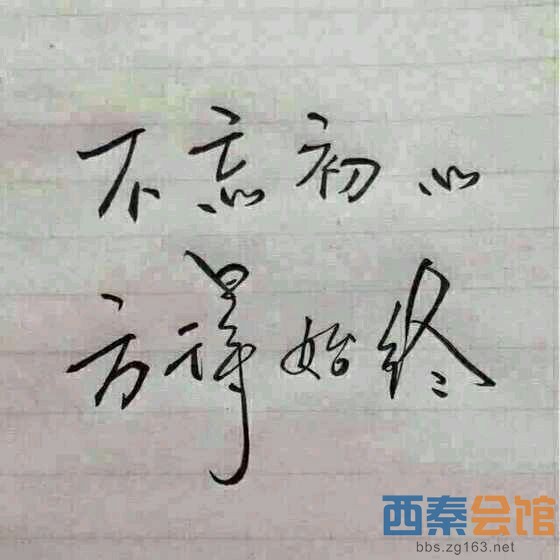 不忘初心
方得始终
西秦会馆
bbs.zg163.net